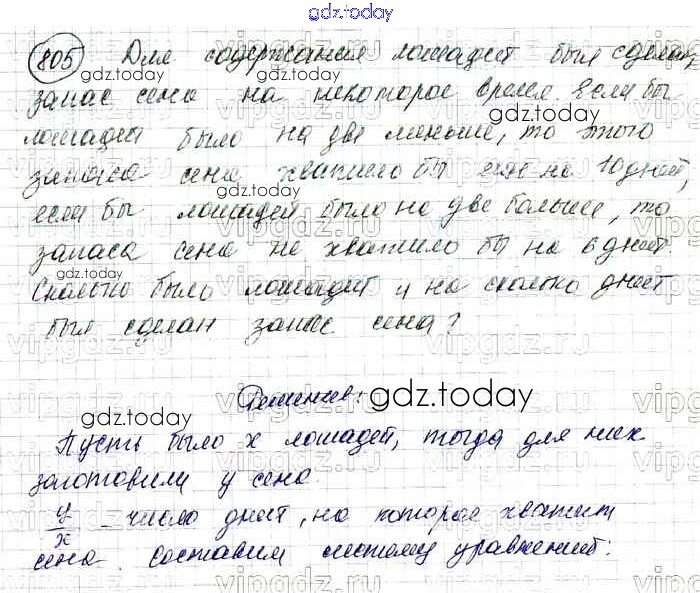 gdz.today
805 Для содержания лошадей был сделан
gdz.today
запас сена на некоторое время. Если бы
gdz.today
лошадей было на две меньше, то этого
запаса сена хватило бы ещё на 10 дней,
gdz.today
если бы лошадей было на две больше, то
запаса сена не хватило бы на 6 дней.
gdz.today
Сколько было лошадей и на сколько дней
был сделан запас сена?
vipgdz.ru
Решение:
gdz.today
gdz.today
Пусть было x лошадей, тогда для них
заготовили y сена.
y/x – число дней, на которое хватит
сена. Составим систему уравнений:
vipgdz.ru